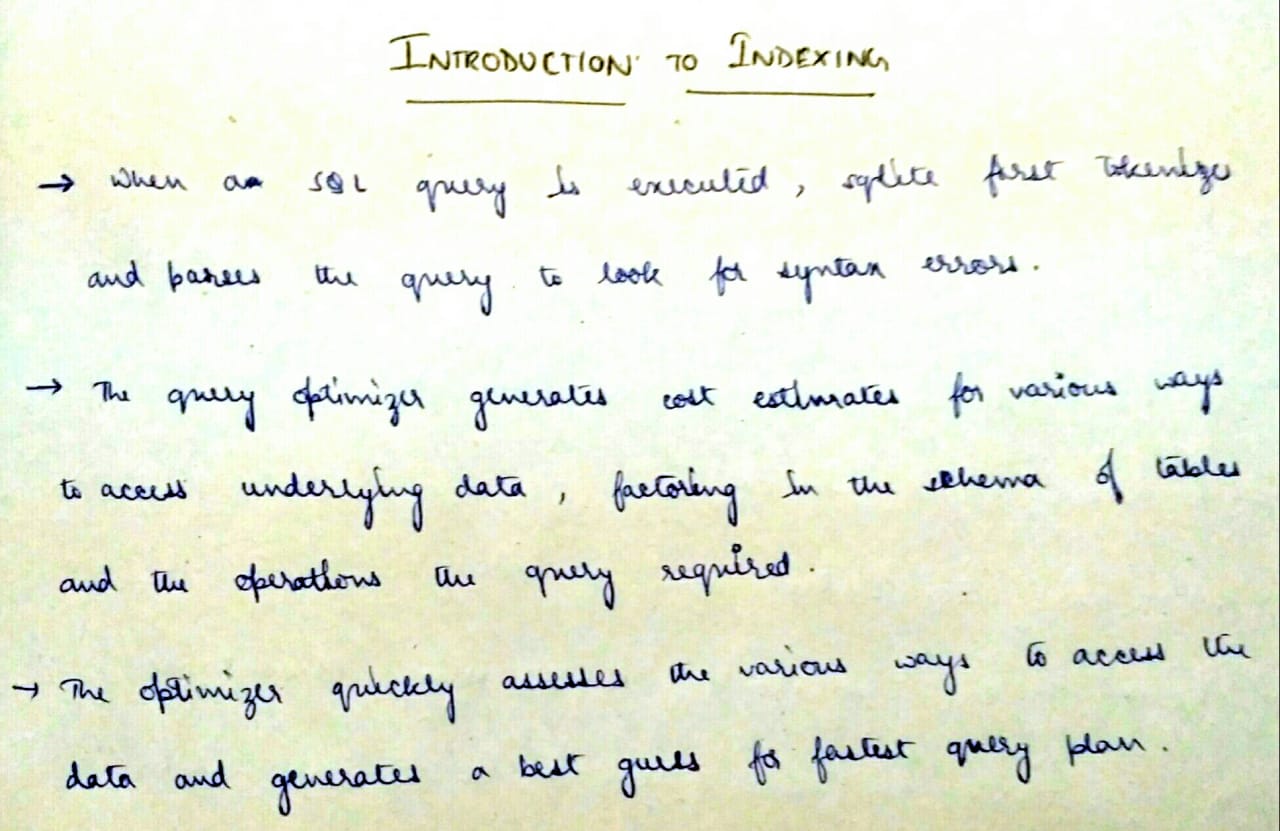 INTRODUCTION TO INDEXING
→ When an SQL query is executed, sqlite first tokenizes
and parses the query to look for syntax errors.
→ The query optimizer generates cost estimates for various ways
to access underlying data, factoring in the schema of tables
and the operations the query required.
→ The optimizer quickly assesses the various ways to access the
data and generates a best guess for fastest query plan.